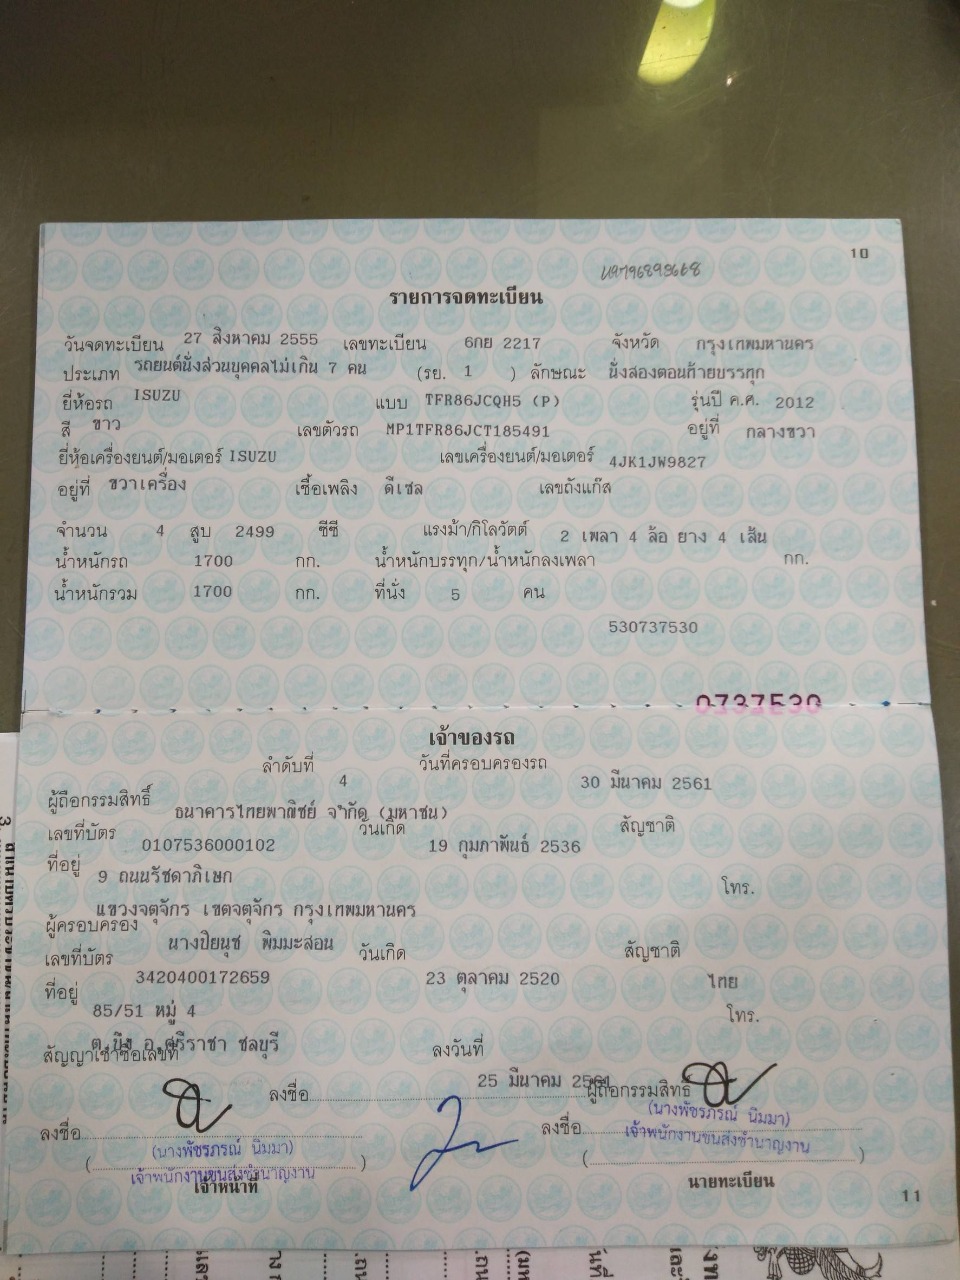 10
รายการจดทะเบียน
วันจดทะเบียน 27 สิงหาคม 2555 เลขทะเบียน 6กย 2217 จังหวัด กรุงเทพมหานคร
ประเภท รถยนต์นั่งส่วนบุคคลไม่เกิน 7 คน (รย. 1 ) ลักษณะ นั่งสองตอนท้ายบรรทุก
ยี่ห้อรถ ISUZU แบบ TFR86JCQH5 (P) รุ่นปี ค.ศ. 2012
สี ขาว เลขตัวรถ MP1TFR86JCT185491 อยู่ที่ กลางขวา
ยี่ห้อเครื่องยนต์/มอเตอร์ ISUZU เลขเครื่องยนต์/มอเตอร์ 4JK1JW9827
อยู่ที่ ขวาเครื่อง เชื้อเพลิง ดีเซล เลขถังแก๊ส
จำนวน 4 สูบ 2499 ซีซี แรงม้า/กิโลวัตต์ 2 เพลา 4 ล้อ ยาง 4 เส้น
น้ำหนักรถ 1700 กก. น้ำหนักบรรทุก/น้ำหนักลงเพลา กก.
น้ำหนักรวม 1700 กก. ที่นั่ง 5 คน
530737530
0737530
เจ้าของรถ
ลำดับที่ 4 วันที่ครอบครองรถ 30 มีนาคม 2561
ผู้ถือกรรมสิทธิ์ ธนาคารไทยพาณิชย์ จำกัด (มหาชน)
เลขที่บัตร 0107536000102 วันเกิด 19 กุมภาพันธ์ 2536 สัญชาติ
ที่อยู่ 9 ถนนรัชดาภิเษก โทร.
แขวงจตุจักร เขตจตุจักร กรุงเทพมหานคร
ผู้ครอบครอง นางปิยนุช พิมมะสอน
เลขที่บัตร 3420400172659 วันเกิด 23 ตุลาคม 2520 สัญชาติ ไทย
ที่อยู่ 85/51 หมู่ 4 โทร.
ต.บึง อ.ศรีราชา ชลบุรี
สัญญาเช่าซื้อเลขที่ ลงวันที่ 25 มีนาคม 2561
ลงชื่อ ผู้ถือกรรมสิทธิ์
ลงชื่อ ลงชื่อ
(นางพัชรภรณ์ นิมมา) (นางพัชรภรณ์ นิมมา)
เจ้าพนักงานขนส่งชำนาญงาน เจ้าพนักงานขนส่งชำนาญงาน
เจ้าหน้าที่ นายทะเบียน
11